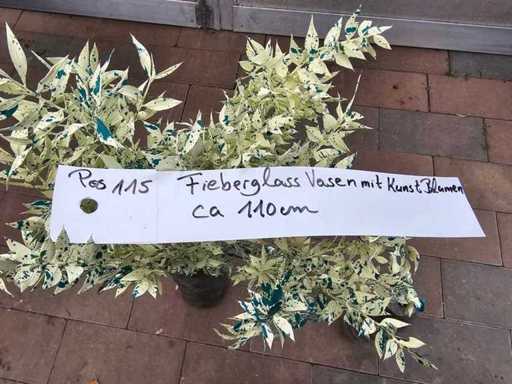 Pos 115 Fieberglass Vasen mit Kunst Blumen
ca 110cm